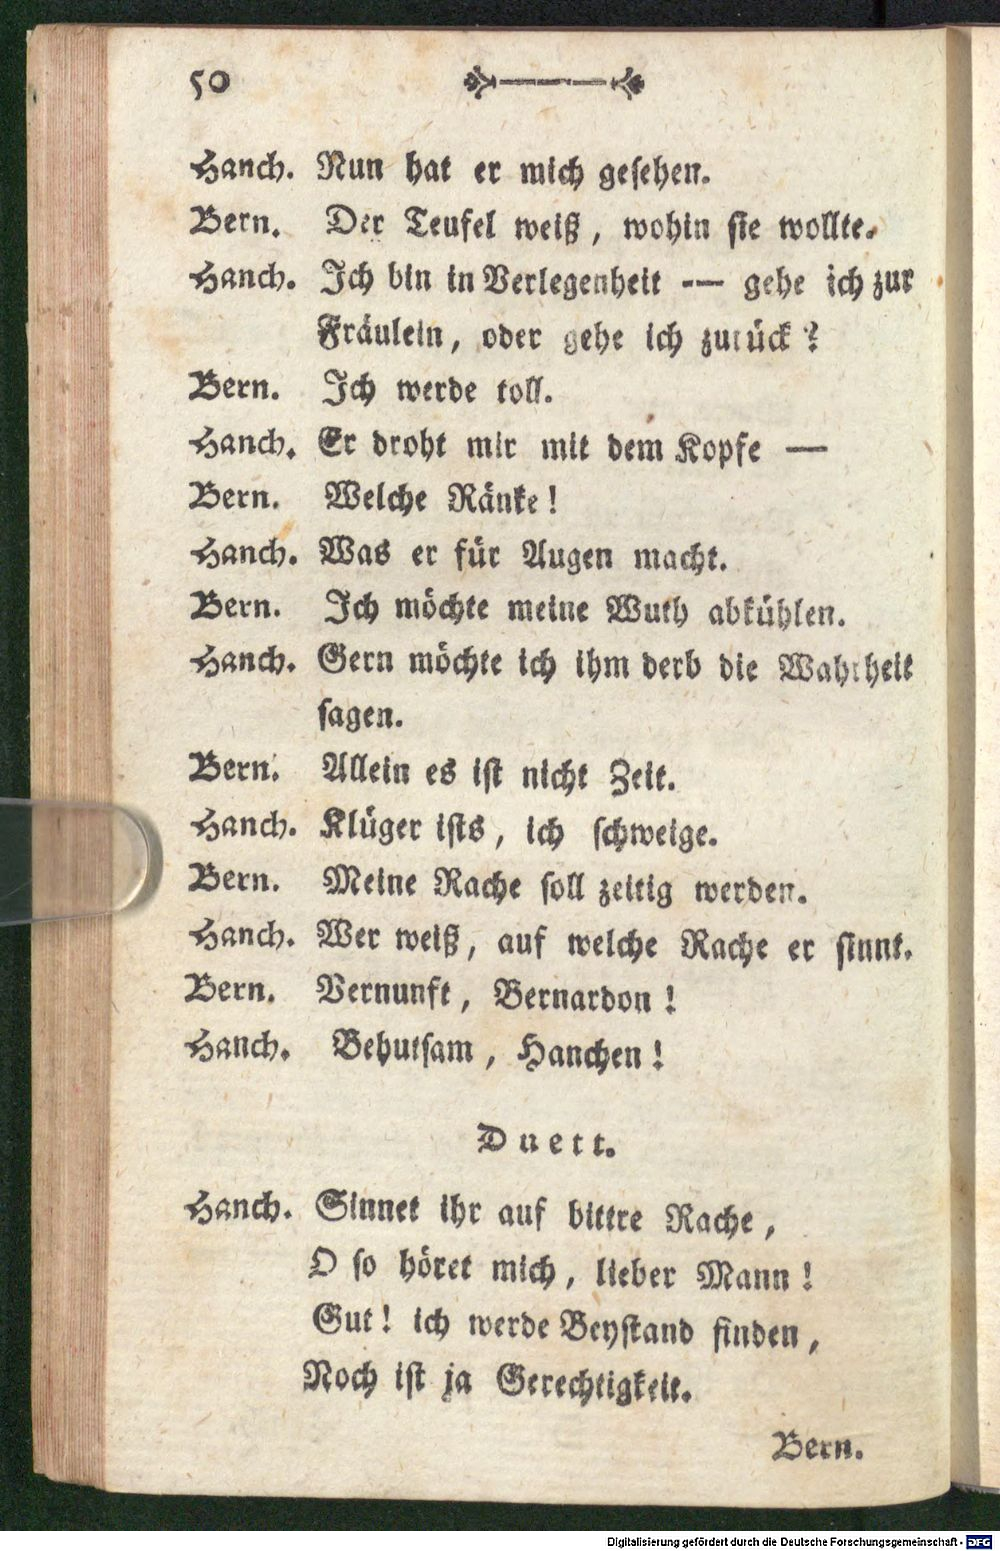 50
Hanch. Nun hat er mich gesehen.
Bern. Der Teufel weiß, wohin sie wollte.
Hanch. Ich bin in Verlegenheit -— gehe ich zur
Fräulein, oder gehe ich zurück?
Bern. Ich werde toll.
Hanch. Er droht mir mit dem Kopfe —
Bern. Welche Ränke!
Hanch. Was er für Augen macht.
Bern. Ich möchte meine Wuth abkühlen.
Hanch. Gern möchte ich ihm derb die Wahrheit
sagen.
Bern. Allein es ist nicht Zeit.
Hanch. Klüger ists, ich schweige.
Bern. Meine Rache soll zeitig werden.
Hanch. Wer weiß, auf welche Rache er sinnt.
Bern. Vernunft, Bernardon!
Hanch. Behutsam, Hanchen!
Duett.
Hanch. Sinnet ihr auf bittre Rache,
O so höret mich, lieber Mann!
Gut! ich werde Beystand finden,
Noch ist ja Gerechtigkeit.
Bern.
Digitalisierung gefördert durch die Deutsche Forschungsgemeinschaft - DFG